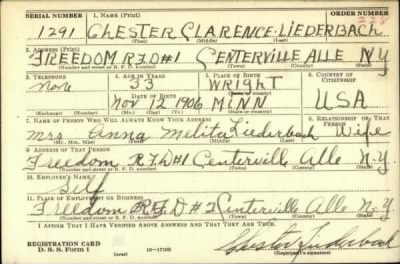 SERIAL NUMBER 1. NAME (Print) ORDER NUMBER
1291 CHESTER CLARENCE LIEDERBACH 228
(First) (Middle) (Last)
2. ADDRESS (Print)
FREEDOM R.F.D#1 CENTERVILLE ALLE NY
(Number and street or R. F. D. number) (Town) (County) (State)
3. TELEPHONE 4. AGE IN YEARS 5. PLACE OF BIRTH 6. COUNTRY OF CITIZENSHIP
None 33 WRIGHT
DATE OF BIRTH (Town or county)
Nov 12 1906 MINN USA
(Exchange) (Number) (Mo.) (Day) (Yr.) (State or country)
7. NAME OF PERSON WHO WILL ALWAYS KNOW YOUR ADDRESS 8. RELATIONSHIP OF THAT PERSON
Mrs. Anna Melita Liederbach Wife
(Mr., Mrs., Miss) (First) (Middle) (Last)
9. ADDRESS OF THAT PERSON
Freedom R.F.D#1 Centerville Alle N-Y.
(Number and street or R. F. D. number) (Town) (County) (State)
10. EMPLOYER'S NAME
Self
11. PLACE OF EMPLOYMENT OR BUSINESS
Freedom R.F.D #1 Centerville Alle N-Y.
(Number and street or R. F. D. number) (Town) (County) (State)
I AFFIRM THAT I HAVE VERIFIED ABOVE ANSWERS AND THAT THEY ARE TRUE.
REGISTRATION CARD
D. S. S. Form 1 (over) 16-17105 Chester Liederbach
(Registrant's signature)